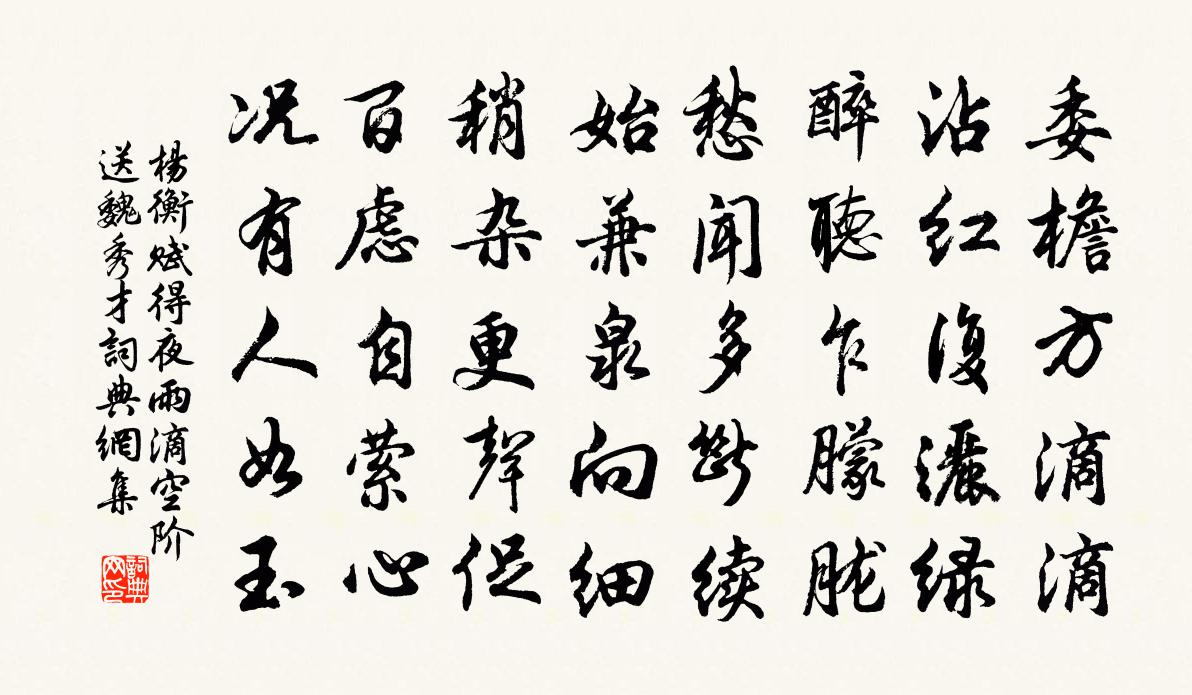 委檐方滴滴
沾红復灑绿
醉聽乍朦胧
愁闻多斷续
始兼泉向细
稍杂更聲促
百虑自萦心
况有人如玉
楊衡赋得夜雨滴空阶
送魏秀才詞典網集
詞典
网印